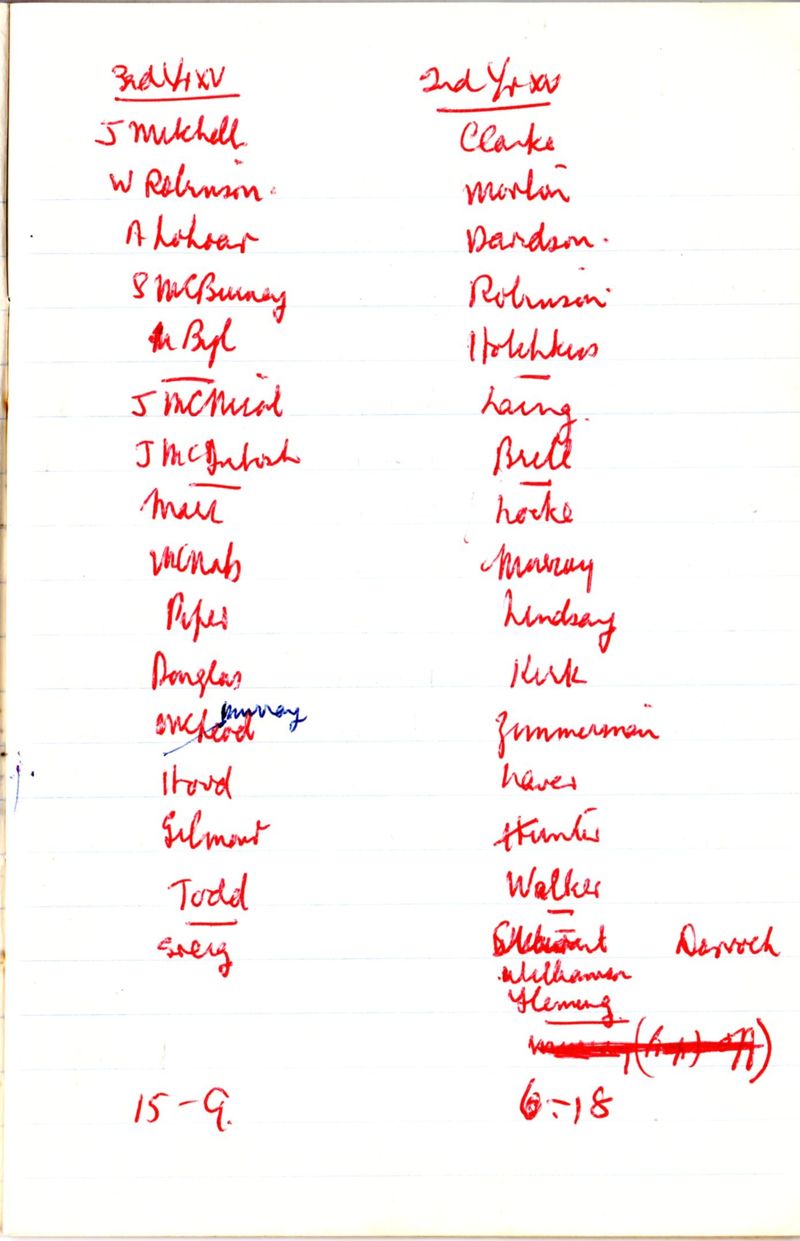 3rd Yr XV
J Mitchell
W Robinson.
A Lohoar
S McBurney
M Byl
J McNicol
J McIntosh
Mair
McNab
Piper
Douglas
McLeod Murray
Hood
Gilmour
Todd
Greig
15-9.
2nd Yr XV
Clarke
Morton
Davidson.
Robinson
Hotchkiss
Laing.
Brill
Locke
Murray
Lindsay
Kirk
Zimmerman
Laver
Hunter
Walker
Stewart Darroch
Williamson
Fleming.
6-18